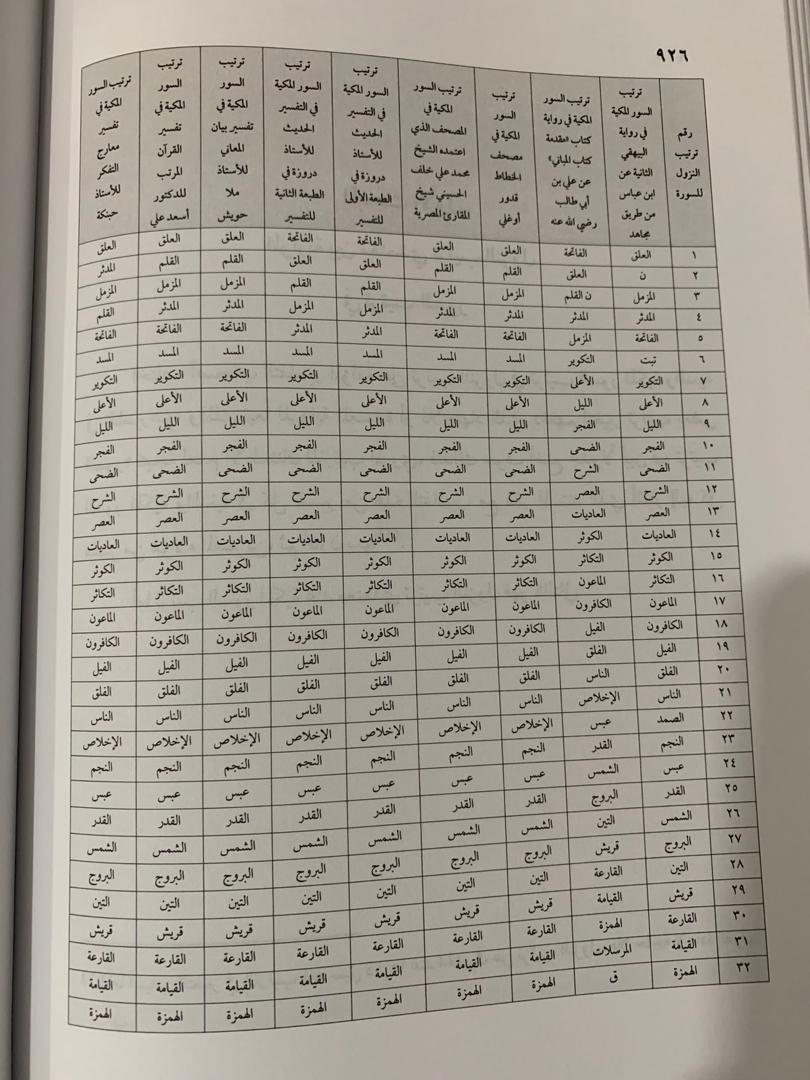 ٩٢٦
رقم
ترتيب
النزول
للسورة
ترتيب
السور المكية
في رواية
البيهقي
الثانية عن
ابن عباس
من طريق
مجاهد
ترتيب السور
المكية في رواية
كتاب «مقدمة
كتاب المباني»
عن علي بن
أبي طالب
رضي الله عنه
ترتيب
السور
المكية في
مصحف
الخطاط
قدور
أوغلي
ترتيب السور
المكية في
المصحف الذي
اعتمده الشيخ
محمد علي خلف
الحسيني شيخ
المقارئ المصرية
ترتيب
السور المكية
في التفسير
الحديث
للأستاذ
دروزة في
الطبعة الأولى
للتفسير
ترتيب
السور المكية
في التفسير
الحديث
للأستاذ
دروزة في
الطبعة الثانية
للتفسير
ترتيب
السور
المكية في
تفسير بيان
المعاني
للأستاذ
ملا
حويش
ترتيب
السور
المكية في
تفسير
القرآن
المرتب
للدكتور
أسعد علي
ترتيب السور
المكية في
تفسير
معارج
التفكر
للأستاذ
حبنكة
١ العلق الفاتحة العلق العلق الفاتحة الفاتحة العلق العلق العلق
٢ ن العلق القلم القلم العلق العلق القلم القلم المدثر
٣ المزمل ن القلم المزمل المزمل القلم القلم المزمل المزمل المزمل
٤ المدثر المدثر المدثر المدثر المزمل المزمل المدثر المدثر القلم
٥ الفاتحة المزمل الفاتحة الفاتحة المدثر المدثر الفاتحة الفاتحة الفاتحة
٦ تبت التكوير المسد المسد المسد المسد المسد المسد المسد
٧ التكوير الأعلى التكوير التكوير التكوير التكوير التكوير التكوير التكوير
٨ الأعلى الليل الأعلى الأعلى الأعلى الأعلى الأعلى الأعلى الأعلى
٩ الليل الفجر الليل الليل الليل الليل الليل الليل الليل
١٠ الفجر الضحى الفجر الفجر الفجر الفجر الفجر الفجر الفجر
١١ الضحى الشرح الضحى الضحى الضحى الضحى الضحى الضحى الضحى
١٢ الشرح العصر الشرح الشرح الشرح الشرح الشرح الشرح الشرح
١٣ العصر العاديات العصر العصر العصر العصر العصر العصر العصر
١٤ العاديات الكوثر العاديات العاديات العاديات العاديات العاديات العاديات العاديات
١٥ الكوثر التكاثر الكوثر الكوثر الكوثر الكوثر الكوثر الكوثر الكوثر
١٦ التكاثر الماعون التكاثر التكاثر التكاثر التكاثر التكاثر التكاثر التكاثر
١٧ الماعون الكافرون الماعون الماعون الماعون الماعون الماعون الماعون الماعون
١٨ الكافرون الفيل الكافرون الكافرون الكافرون الكافرون الكافرون الكافرون الكافرون
١٩ الفيل الفلق الفيل الفيل الفيل الفيل الفيل الفيل الفيل
٢٠ الفلق الناس الفلق الفلق الفلق الفلق الفلق الفلق الفلق
٢١ الناس الإخلاص الناس الناس الناس الناس الناس الناس الناس
٢٢ الصمد عبس الإخلاص الإخلاص الإخلاص الإخلاص الإخلاص الإخلاص الإخلاص
٢٣ النجم القدر النجم النجم النجم النجم النجم النجم النجم
٢٤ عبس الشمس عبس عبس عبس عبس عبس عبس عبس
٢٥ القدر البروج القدر القدر القدر القدر القدر القدر القدر
٢٦ الشمس التين الشمس الشمس الشمس الشمس الشمس الشمس الشمس
٢٧ البروج قريش البروج البروج البروج البروج البروج البروج البروج
٢٨ التين القارعة التين التين التين التين التين التين التين
٢٩ قريش القيامة قريش قريش قريش قريش قريش قريش قريش
٣٠ القارعة الهمزة القارعة القارعة القارعة القارعة القارعة القارعة القارعة
٣١ القيامة المرسلات القيامة القيامة القيامة القيامة القيامة القيامة القيامة
٣٢ الهمزة ق الهمزة الهمزة الهمزة الهمزة الهمزة الهمزة الهمزة